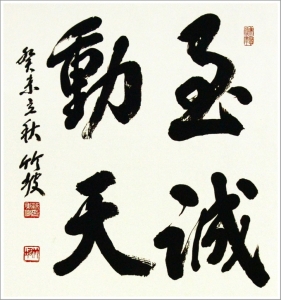 至誠
動天
癸未立秋竹坡